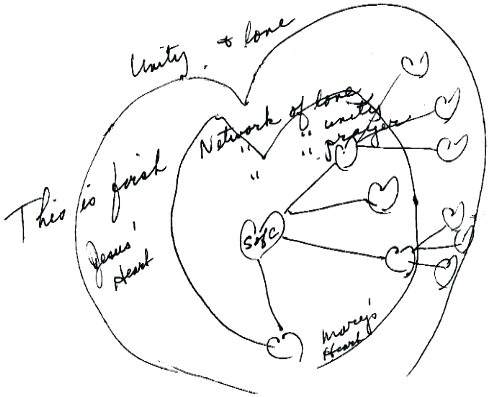 Unity & love
Network of love
" " unity
" " prayer
This is first
Jesus'
Heart
Mary's
Heart